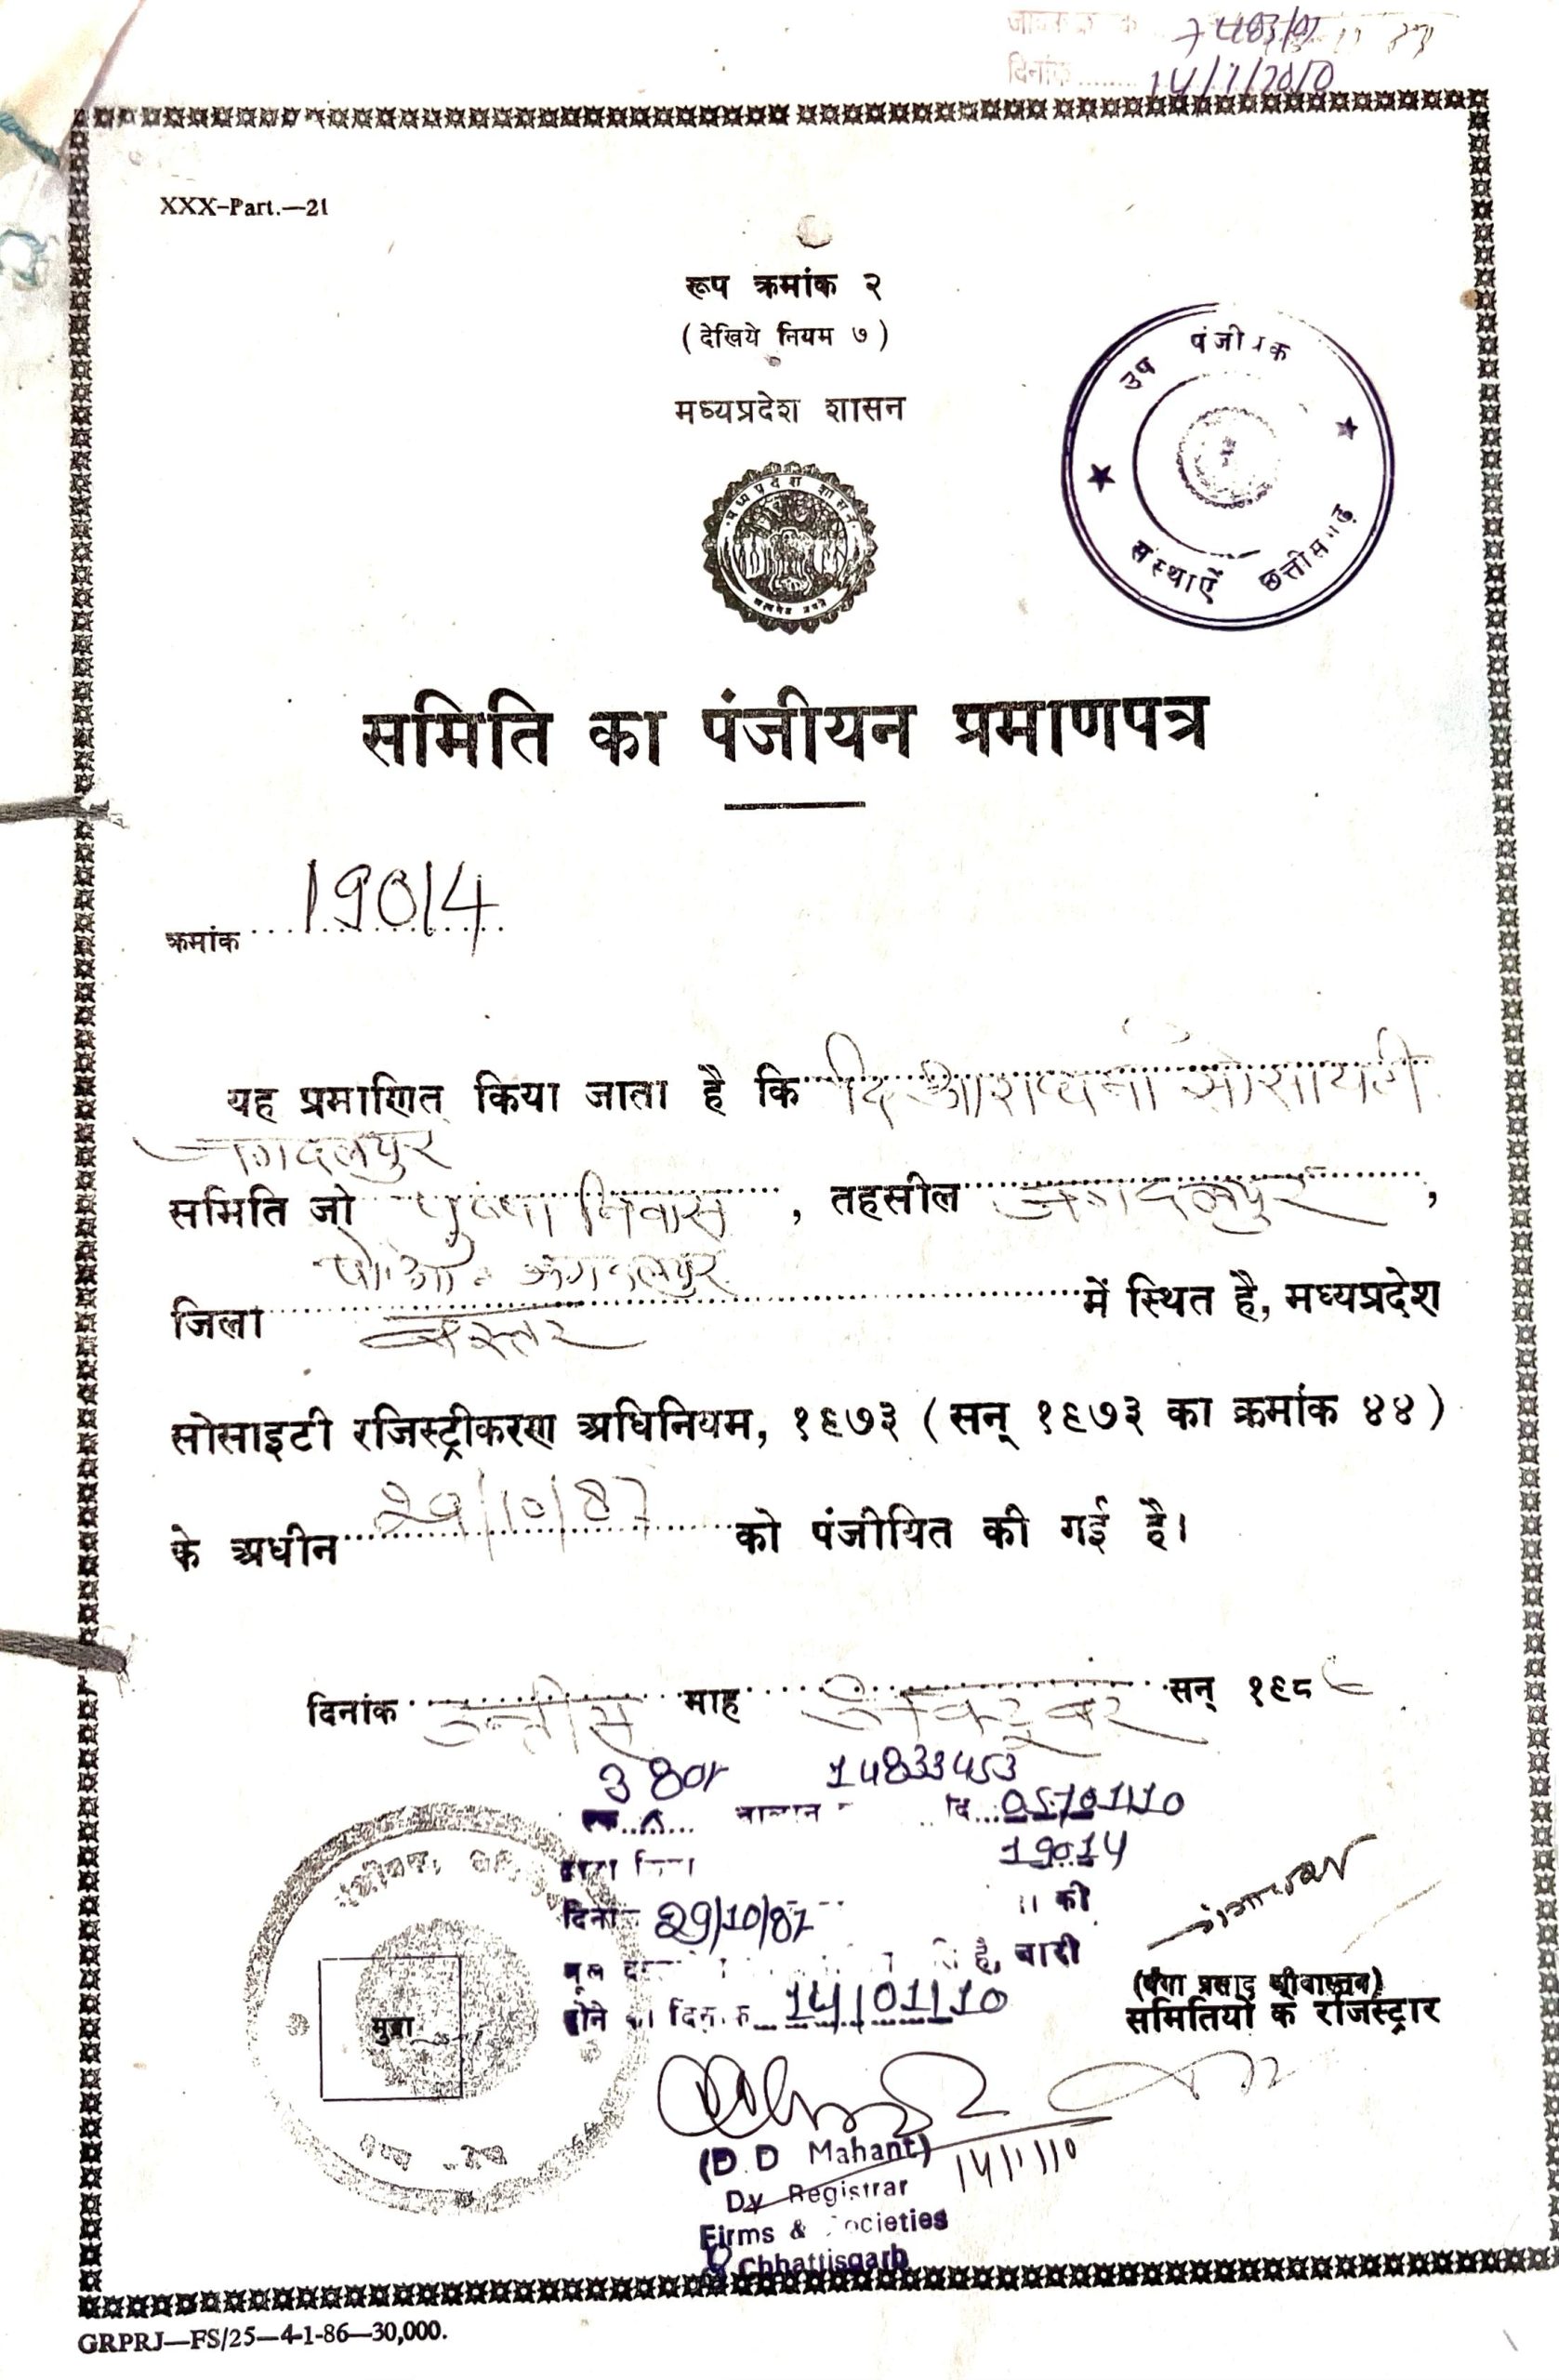 7483/01
दिनांक ........ 14/1/2010
XXX-Part.—21
रूप क्रमांक २
( देखिये नियम ७ )
मध्यप्रदेश शासन
उप पंजीयक
संस्थाएँ छत्तीसगढ़
मध्यप्रदेश शासन
सत्यमेव जयते
समिति का पंजीयन प्रमाणपत्र
क्रमांक 19014
यह प्रमाणित किया जाता है कि दि आराधना सोसायटी
जगदलपुर
समिति जो निवास , तहसील जगदलपुर ,
पो.ओ. जगदलपुर
जिला बस्तर में स्थित है, मध्यप्रदेश
सोसाइटी रजिस्ट्रीकरण अधिनियम, १९७३ ( सन् १९७३ का क्रमांक ४४ )
के अधीन 29/10/87 को पंजीयित की गई है।
दिनांक उन्तीस माह अक्टूबर सन् १९८
14833453
चालान दि... 05/01/10
19014
दिनांक 29/10/87 की
है, जारी
होने का दिनांक 14/01/10
मुद्रा
प्रसाद श्रीवास्तव)
समितियों के रजिस्ट्रार
(D.D Mahant)
14/1/10
Dy Registrar
Firms & Societies
Chhattisgarh
GRPRJ—FS/25—4-1-86—30,000.